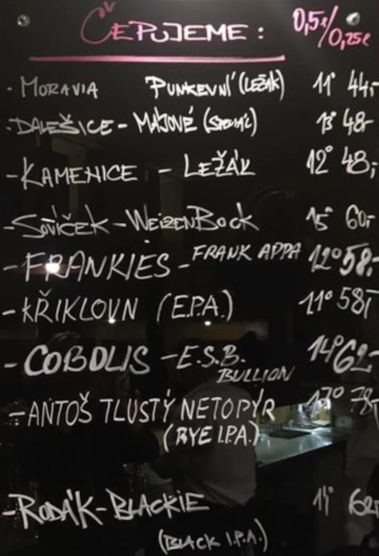 ČEPUJEME: 0,5ℓ/0,25ℓ
- MORAVIA PUNKEVNÍ (LEŽÁK) 11° 44,-
- DALEŠICE - MÁJOVÉ 13° 48,-
- KAMENICE - LEŽÁK 12° 48,-
- SOVÍČEK - WEIZENBOCK 15° 60,-
- FRANKIES - FRANK APPA 12° 58,-
- KŘIKLOUN (E.P.A.) 11° 58,-
- COBOLIS - E.S.B. 14° 62,-
BULLION
- ANTOŠ TLUSTÝ NETOPÝR
(RYE I.P.A.)
- RODÁK - BLACKIE 62,-
(BLACK I.P.A.)